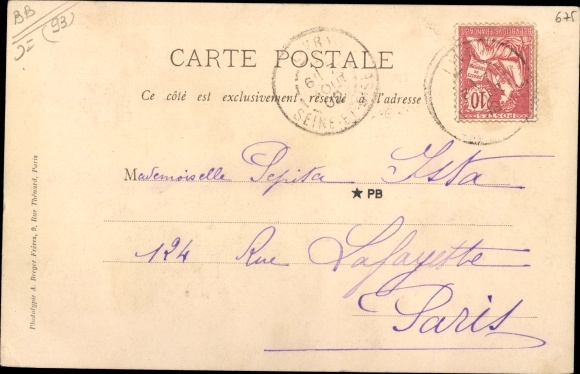 BB
(93)
675
CARTE POSTALE
Ce côté est exclusivement réservé à l'adresse
SEINE-ET-
10
POSTES
Mademoiselle Pepita Ista
★ PB
124 Rue Lafayette
Paris
Phototypie A. Berger Frères, 9, Rue Thénard, Paris